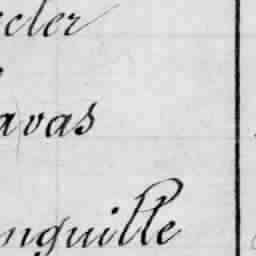 cler
avas
nguille